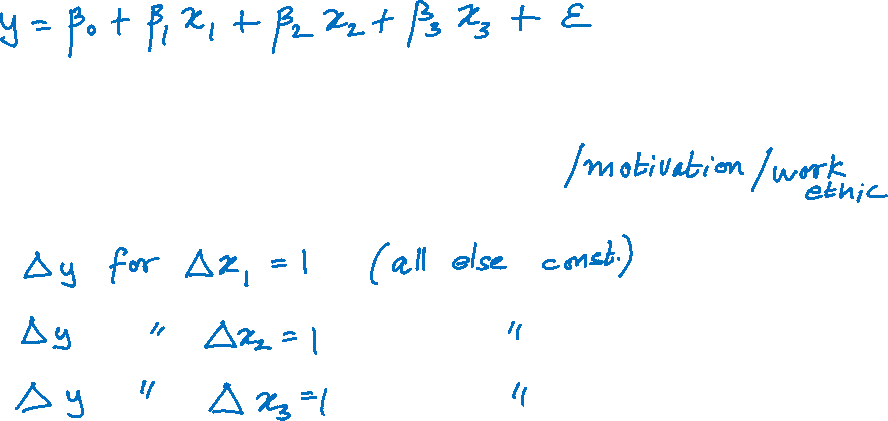 y = β₀ + β₁ x₁ + β₂ x₂ + β₃ x₃ + ε
/motivation /work ethic
Δy for Δx₁ = 1 (all else const.)
Δy " Δx₂ = 1 "
Δy " Δx₃ = 1 "